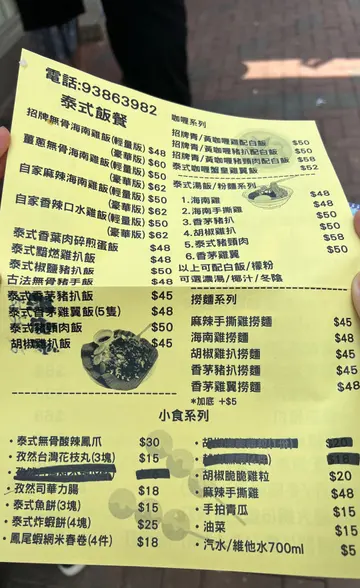 電話:93863982
泰式飯餐
招牌無骨海南雞飯(輕量版) $48
(豪華版) $60
薑蔥無骨海南雞飯(輕量版) $50
(豪華版) $62
自家麻辣海南雞飯(輕量版) $50
(豪華版) $62
自家香辣口水雞飯(輕量版) $50
(豪華版) $62
泰式香葉肉碎煎蛋飯 $48
泰式豔燃雞扒飯 $48
泰式椒鹽豬扒飯 $50
古法無骨豬手飯 $48
泰式香茅豬扒飯 $45
泰式香茅雞翼飯(5隻) $48
泰式豬頸肉飯 $50
胡椒雞扒飯 $45
咖喱系列
招牌青/黃咖喱雞配白飯 $50
招牌青/黃咖喱豬扒配白飯 $50
招牌青/黃咖喱豬頸肉配白飯 $58
泰式咖喱蟹皇雞翼飯 $52
泰式湯飯/粉麵系列
1.海南雞 $48
2.海南手撕雞 $48
3.香茅豬扒 $50
4.胡椒雞扒 $50
5.泰式豬頸肉 $58
6.香茅雞翼 $50
以上可配白飯/檬粉
可選濃湯/椰汁/冬陰
撈麵系列
麻辣手撕雞撈麵 $45
海南雞撈麵 $48
胡椒雞扒撈麵 $45
香茅豬扒撈麵 $45
香茅雞翼撈麵 $48
*加底 +$5
小食系列
·泰式無骨酸辣鳳爪 $30
·孜然台灣花枝丸(3塊) $15
·孜然司華力腸 $18
·泰式魚餅(3塊) $15
·泰式炸蝦餅(4塊) $25
·鳳尾蝦網米春卷(4件) $18
$20
$18
·胡椒脆脆雞粒 $20
·麻辣手撕雞 $48
·手拍青瓜 $15
·油菜 $15
·汽水/維他水700ml $5